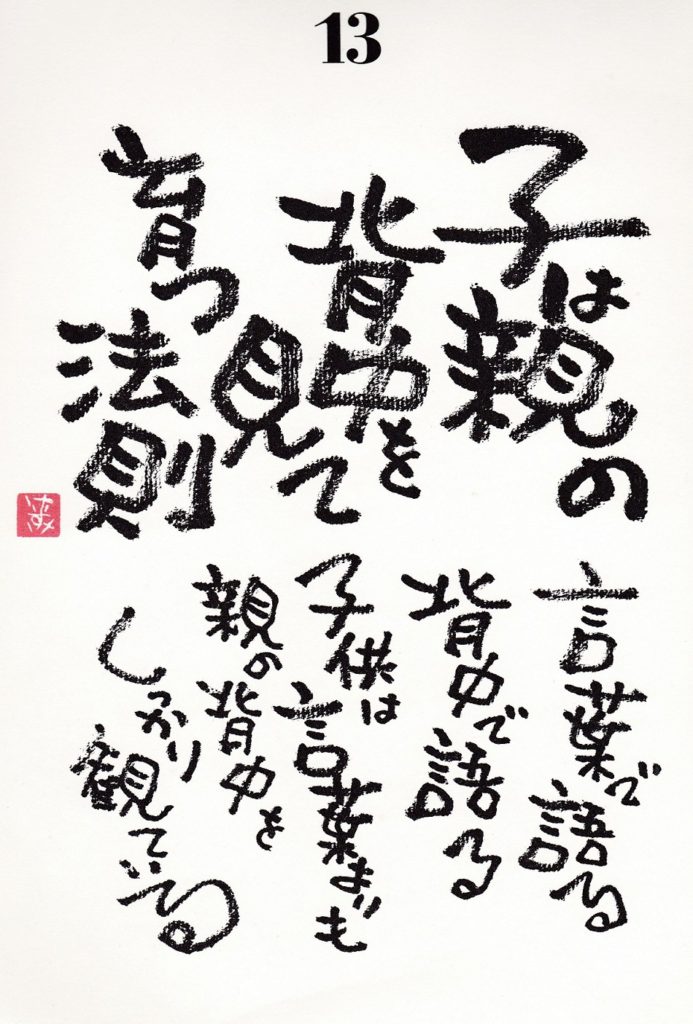 13
子は親の
背中を
見て
育つ
法則
言葉で語る
背中で語る
子供は
言葉よりも
親の背中を
しっかり観ている